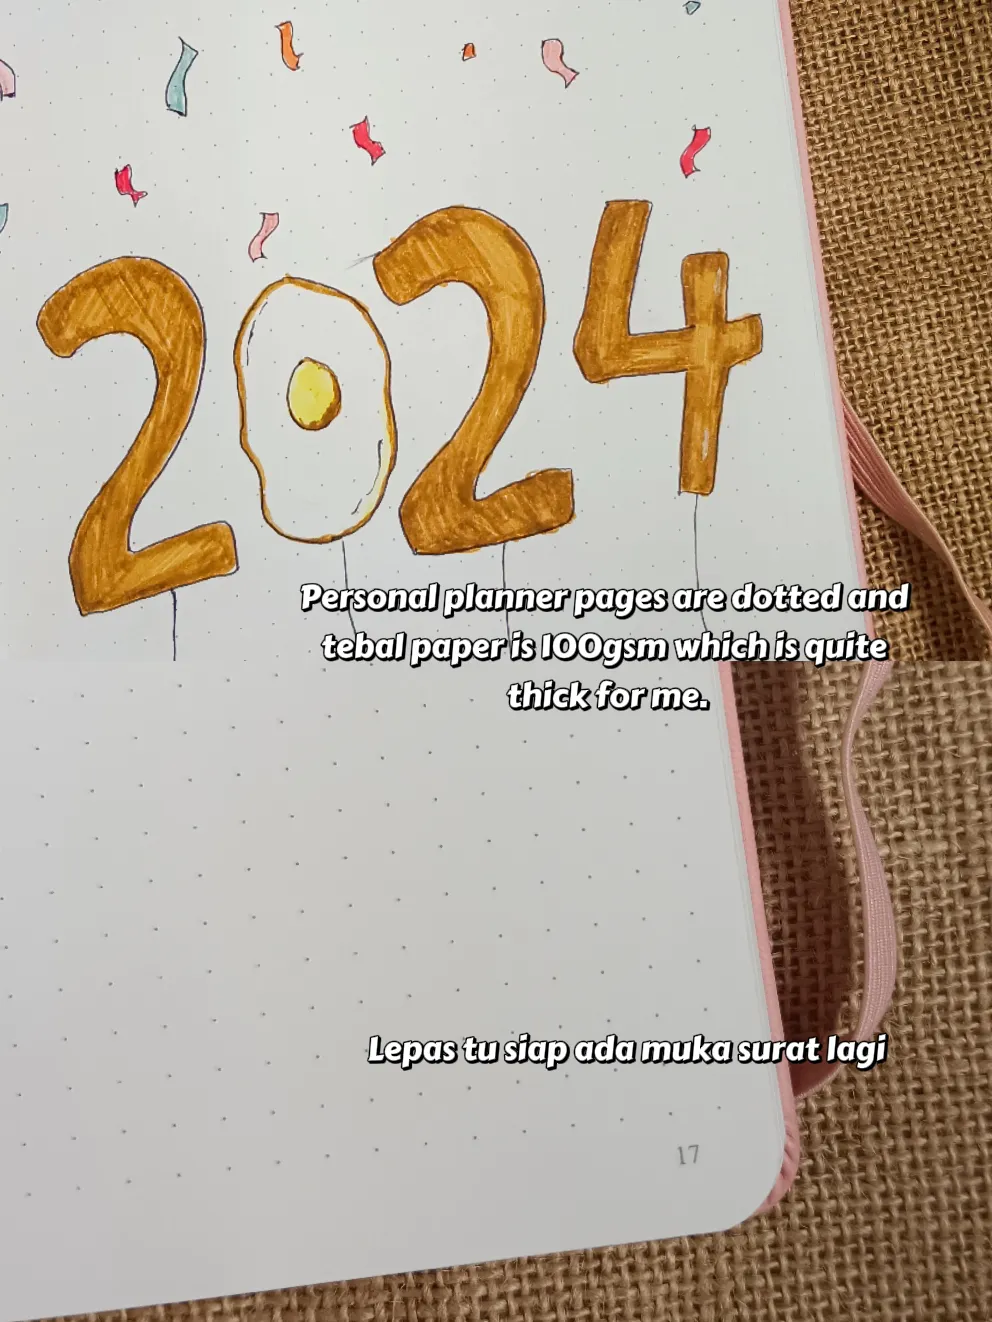 2024
Personal planner pages are dotted and
tebal paper is 100gsm which is quite
thick for me.
Lepas tu siap ada muka surat lagi
17